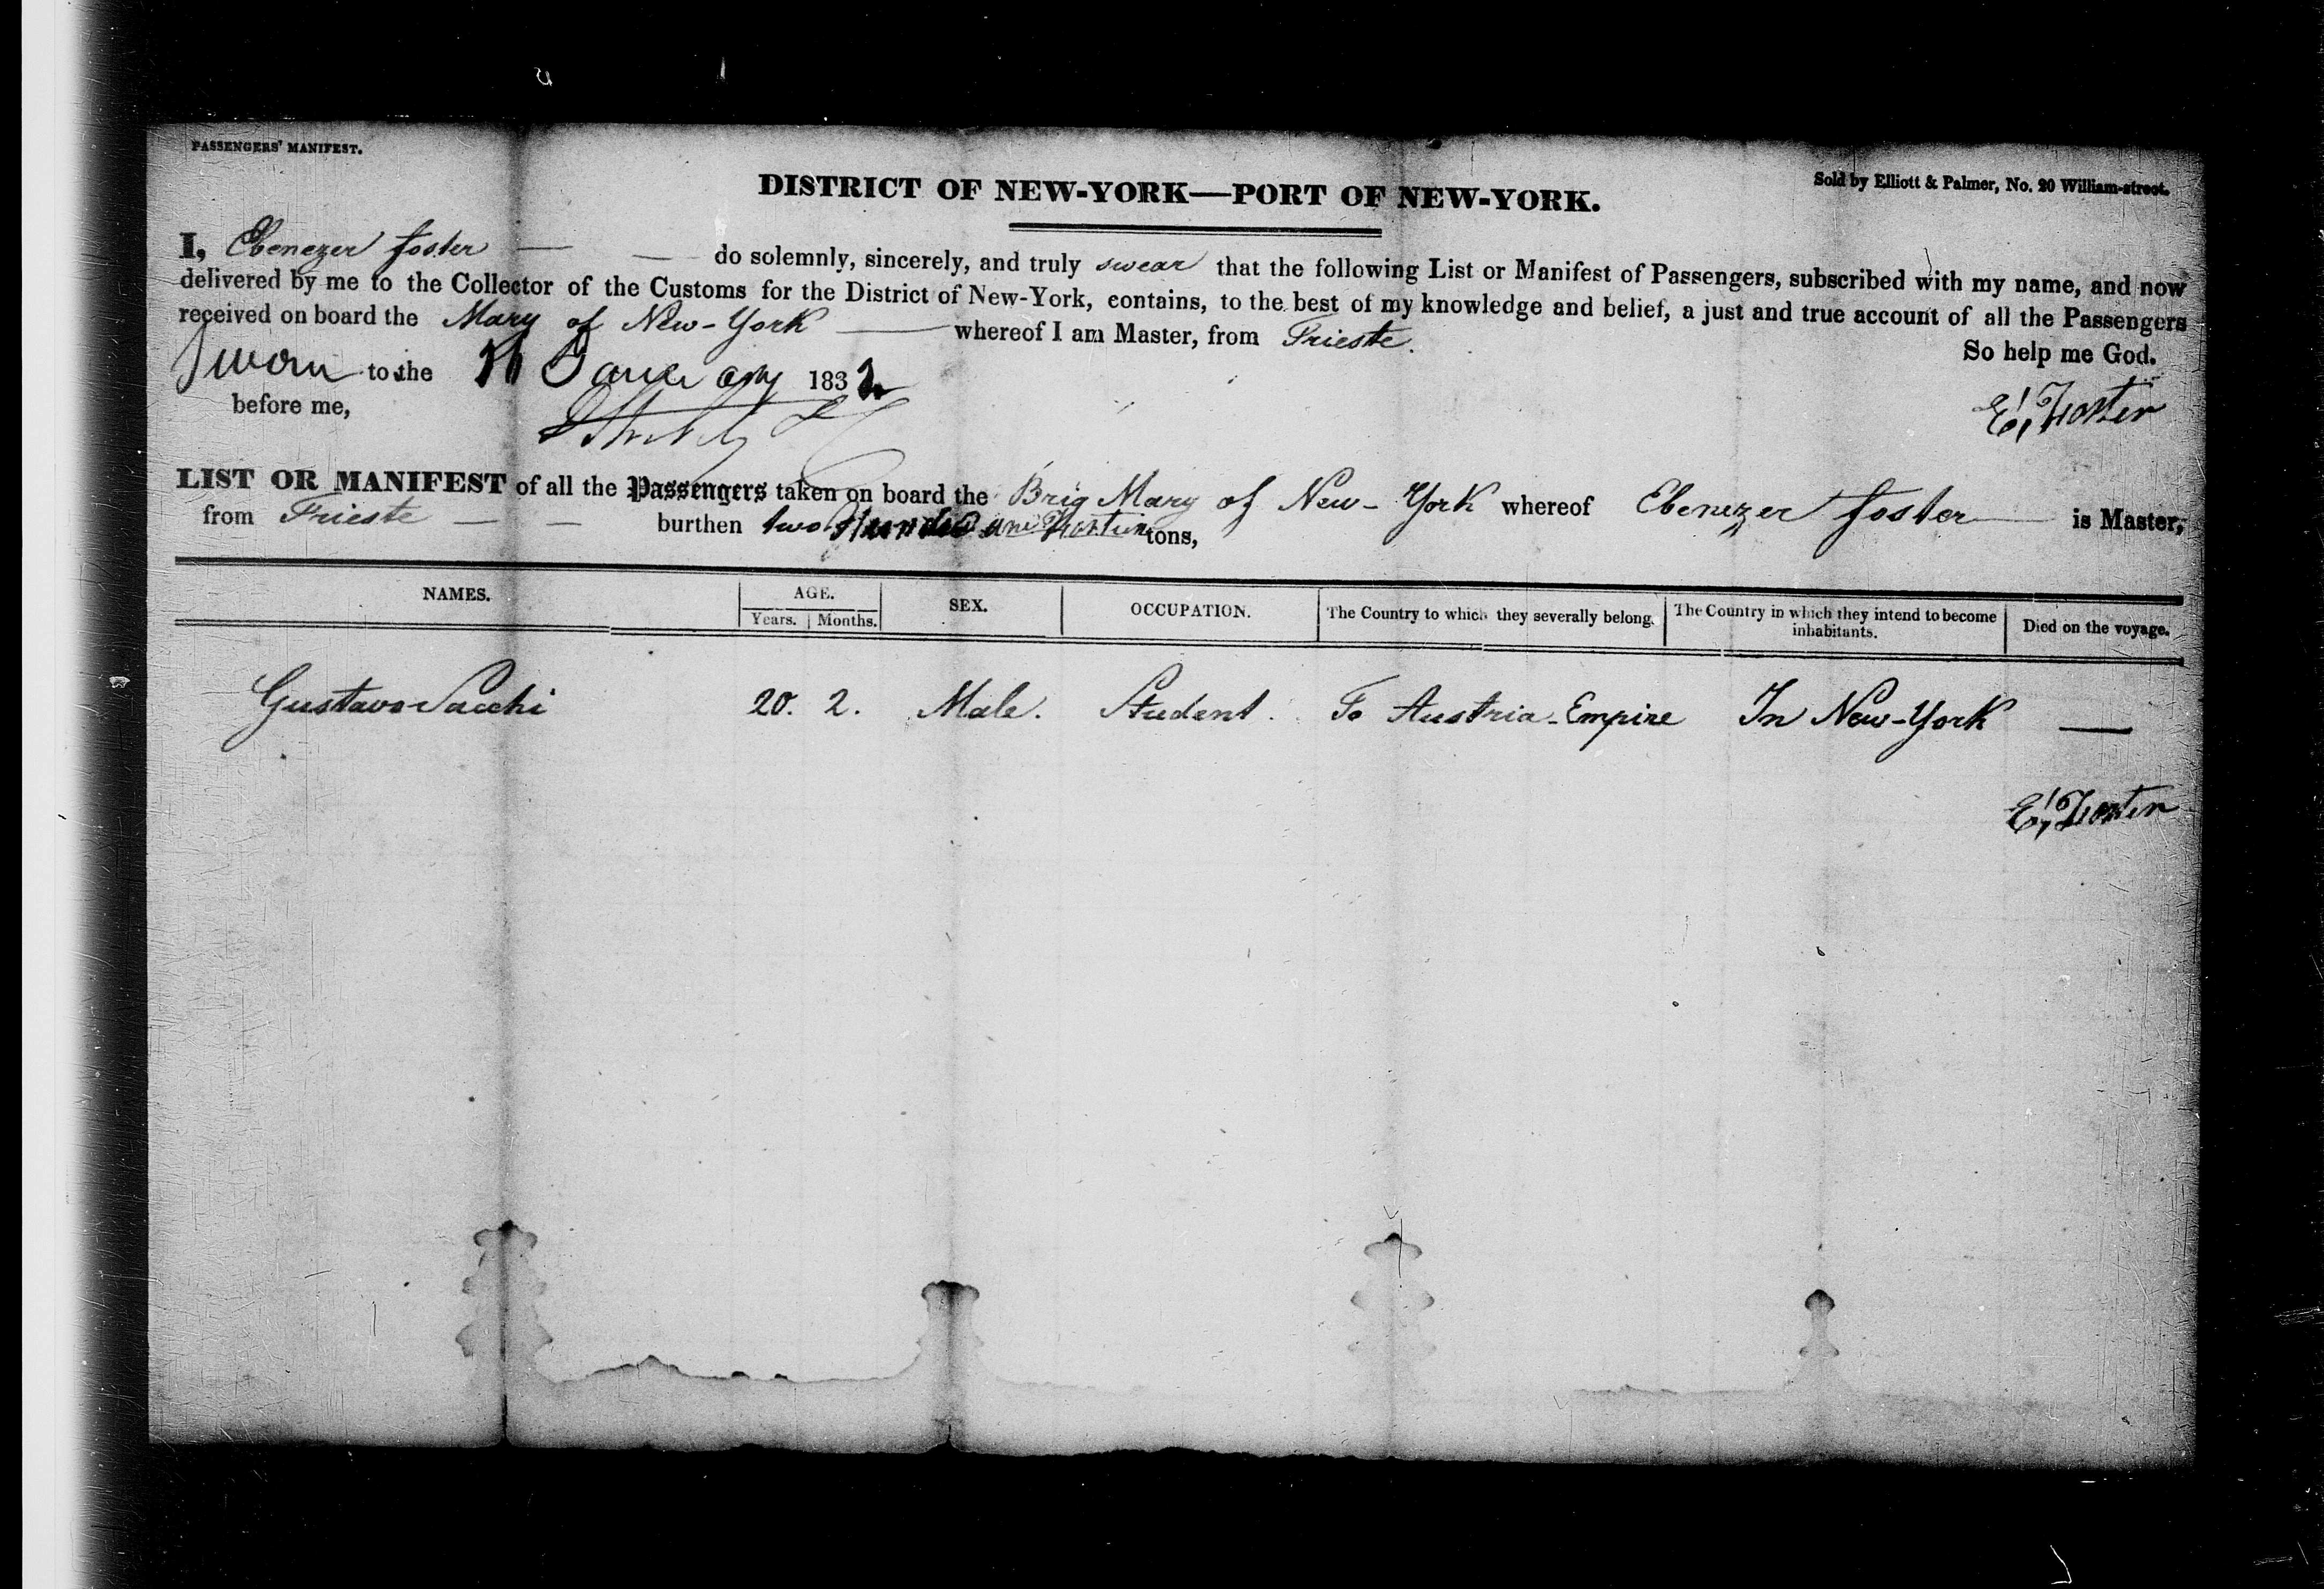 PASSENGERS' MANIFEST.
DISTRICT OF NEW-YORK—PORT OF NEW-YORK.
Sold by Elliott & Palmer, No. 20 William-street.
I, Ebenezer foster — — do solemnly, sincerely, and truly swear that the following List or Manifest of Passengers, subscribed with my name, and now
delivered by me to the Collector of the Customs for the District of New-York, contains, to the best of my knowledge and belief, a just and true account of all the Passengers
received on board the Mary of New-York — whereof I am Master, from Trieste.
So help me God.
Sworn to the January 1832
before me,
E. Foster
LIST OR MANIFEST of all the Passengers taken on board the Brig Mary of New-York whereof Ebenezer foster — is Master,
from Trieste — — burthen two Hundred and tons,
NAMES. AGE. SEX. OCCUPATION. The Country to which they severally belong. The Country in which they intend to become inhabitants. Died on the voyage.
Years. Months.
Gustavo Sacchi 20. 2. Male. Student. To Austria-Empire In New-York —
E. Foster